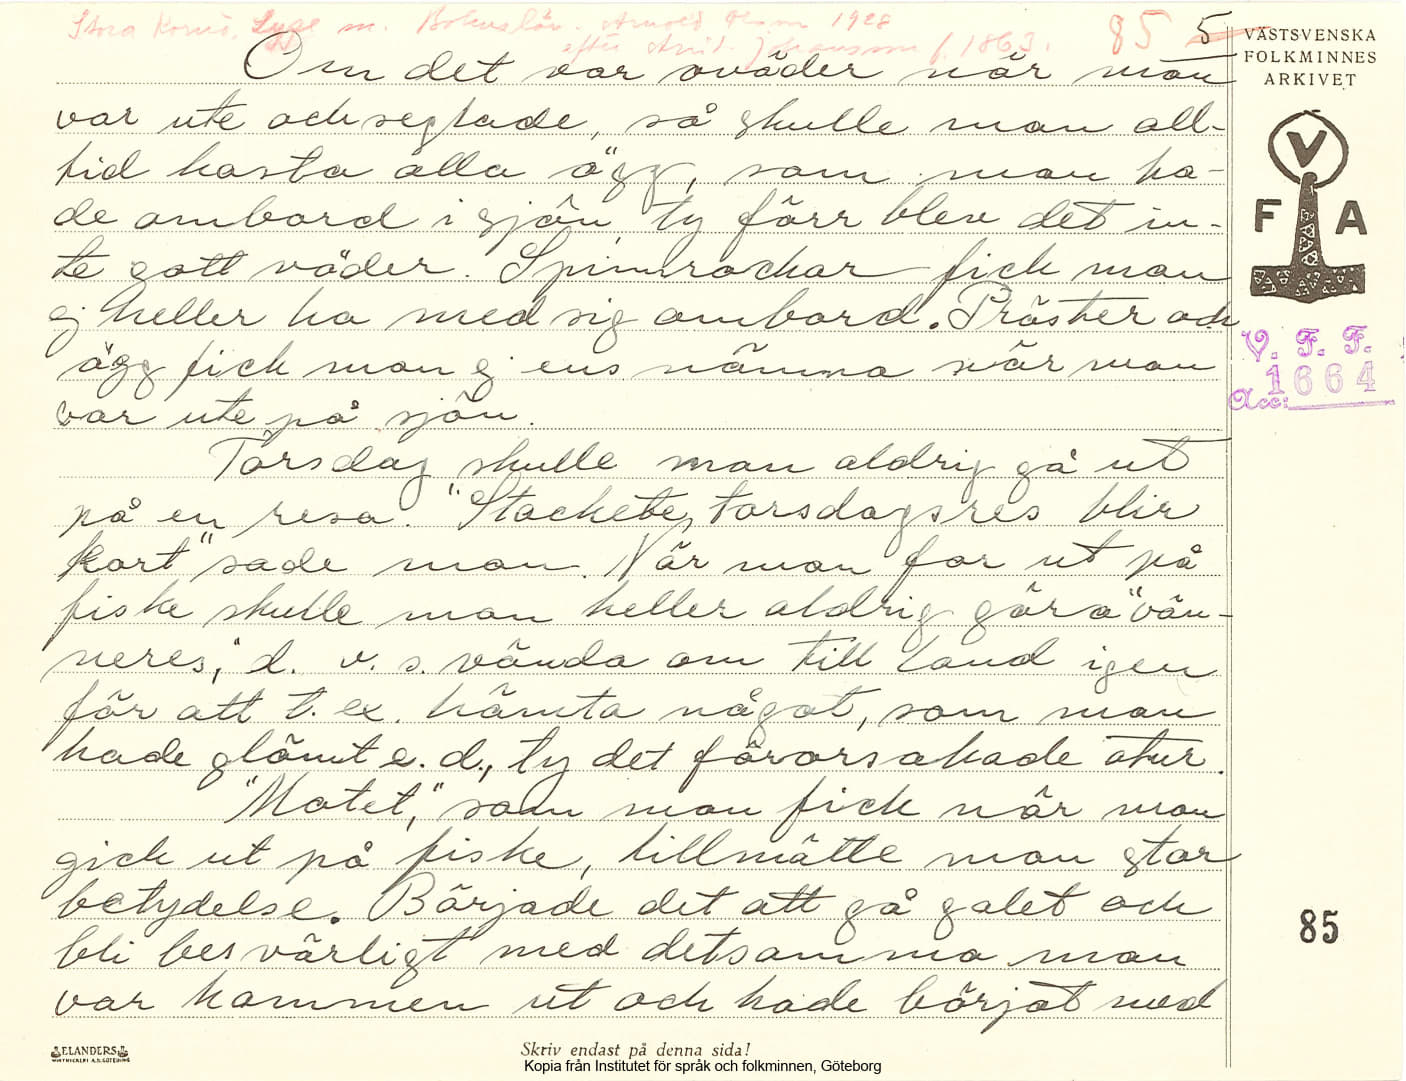 Stora Kornö, Lyse sn. Bohuslän. Arnold Olsson 1928
efter Arvid Johansson f. 1863. 85 5
VÄSTSVENSKA
FOLKMINNES
ARKIVET
V
F A
V. F. F.
Acc: 1664
Om det var oväder när man
var ute och seglade, så skulle man all-
tid kasta alla ägg, som man ha-
de ombord i sjön, ty förr blev det in-
te gott väder. Spinnrockar fick man
ej heller ha med sig ombord. Präster och
ägg fick man ej ens nämna när man
var ute på sjön.
Torsdag skulle man aldrig gå ut
på en resa. "Stackete torsdagsres blir
kort" sade man. När man for ut på
fiske skulle man heller aldrig göra "vän-
neres," d. v. s. vända om till land igen
för att t. ex. hämta något, som man
hade glömt e. d., ty det förorsakade otur.
"Motet," som man fick när man
gick ut på fiske, tillmätte man stor
betydelse. Började det att gå galet och
bli besvärligt med detsamma man
var kommen ut och hade börjat med
85
ELANDERS
Skriv endast på denna sida!
Kopia från Institutet för språk och folkminnen, Göteborg